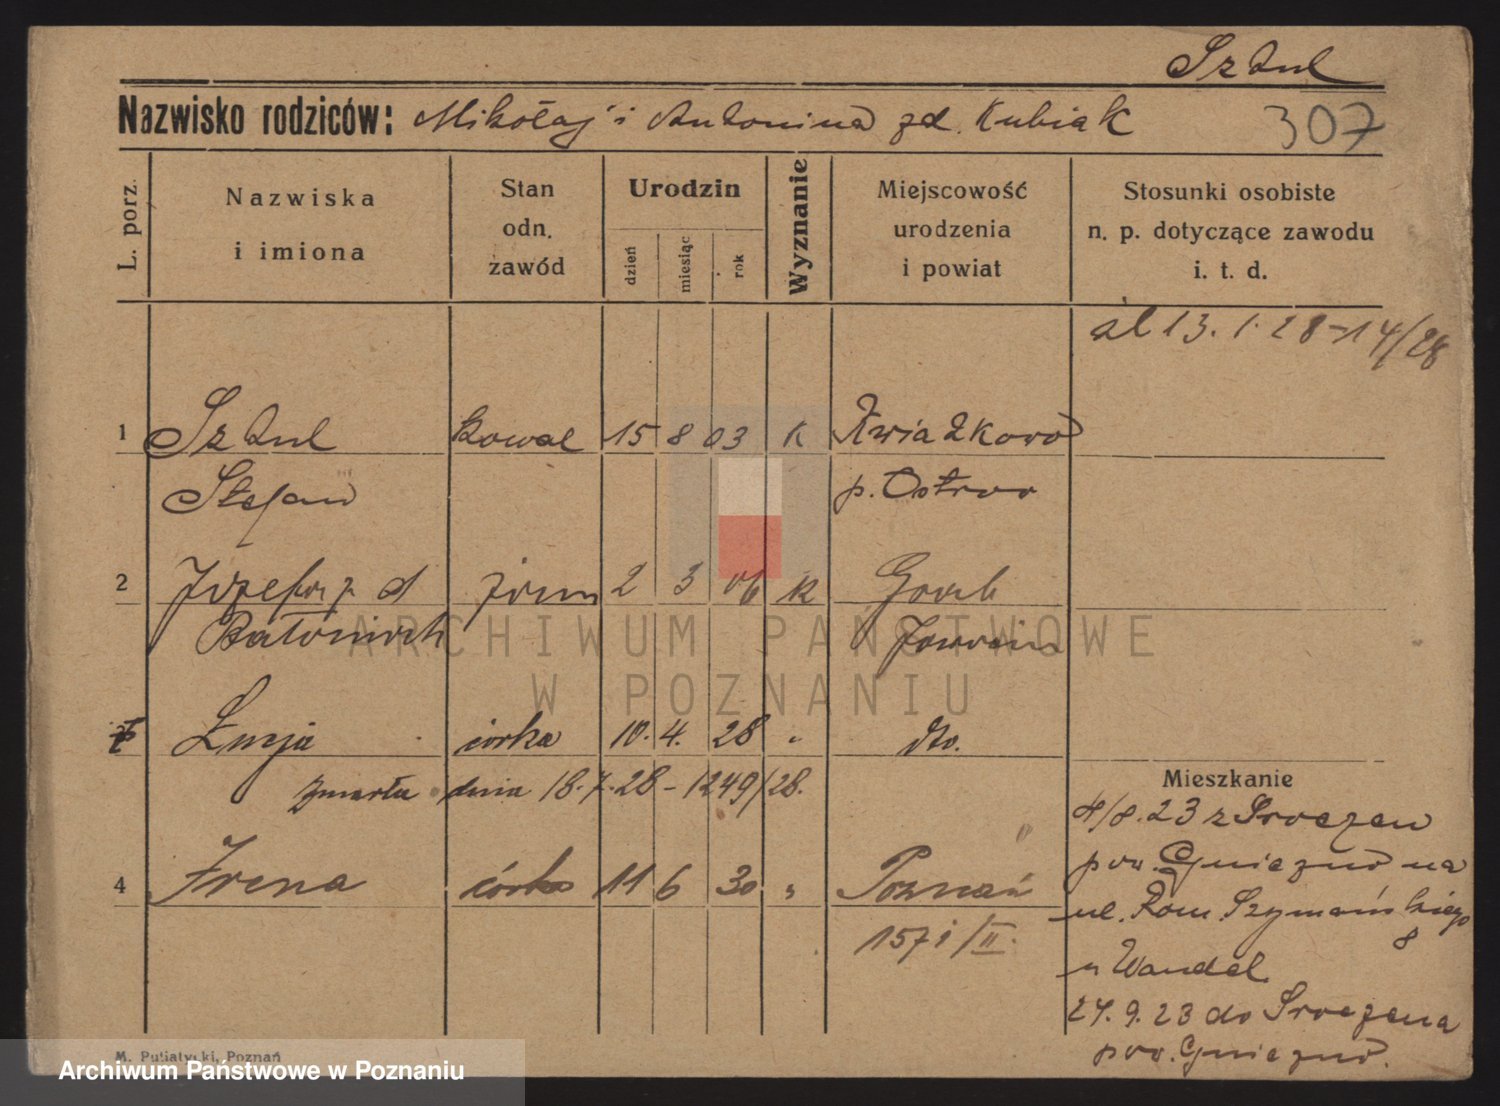 Sztul
Nazwisko rodziców: Mikołaj i Antonina zd. Kubiak
307
L. porz.
Nazwiska i imiona
Stan odn. zawód
Urodzin
dzień
miesiąc
rok
Wyznanie
Miejscowość urodzenia i powiat
Stosunki osobiste n. p. dotyczące zawodu i. t. d.
śl 13. 1. 28 - 14/28
1 Sztul kowal 15 8 03 K Kwiatkowo
Stefan p. Ostrow
2 Józefa z d żona 2 3 06 K Gorch
Jarocin
Łucja córka 10. 4. 28 " dto.
zmarła dnia 18. 7. 28 - 1249/28.
4 Irena córka 11 6 30 " Poznań
1571/II.
Mieszkanie
4/8. 23 z Sroczyn
pow. Gniezno na
ul. Rom. Szymańskiego
8
u Wandel
24. 9. 23 do Sroczyna
pow. Gniezno.
M. Putiatycki, Poznań
ARCHIWUM PAŃSTWOWE
W POZNANIU
Archiwum Państwowe w Poznaniu